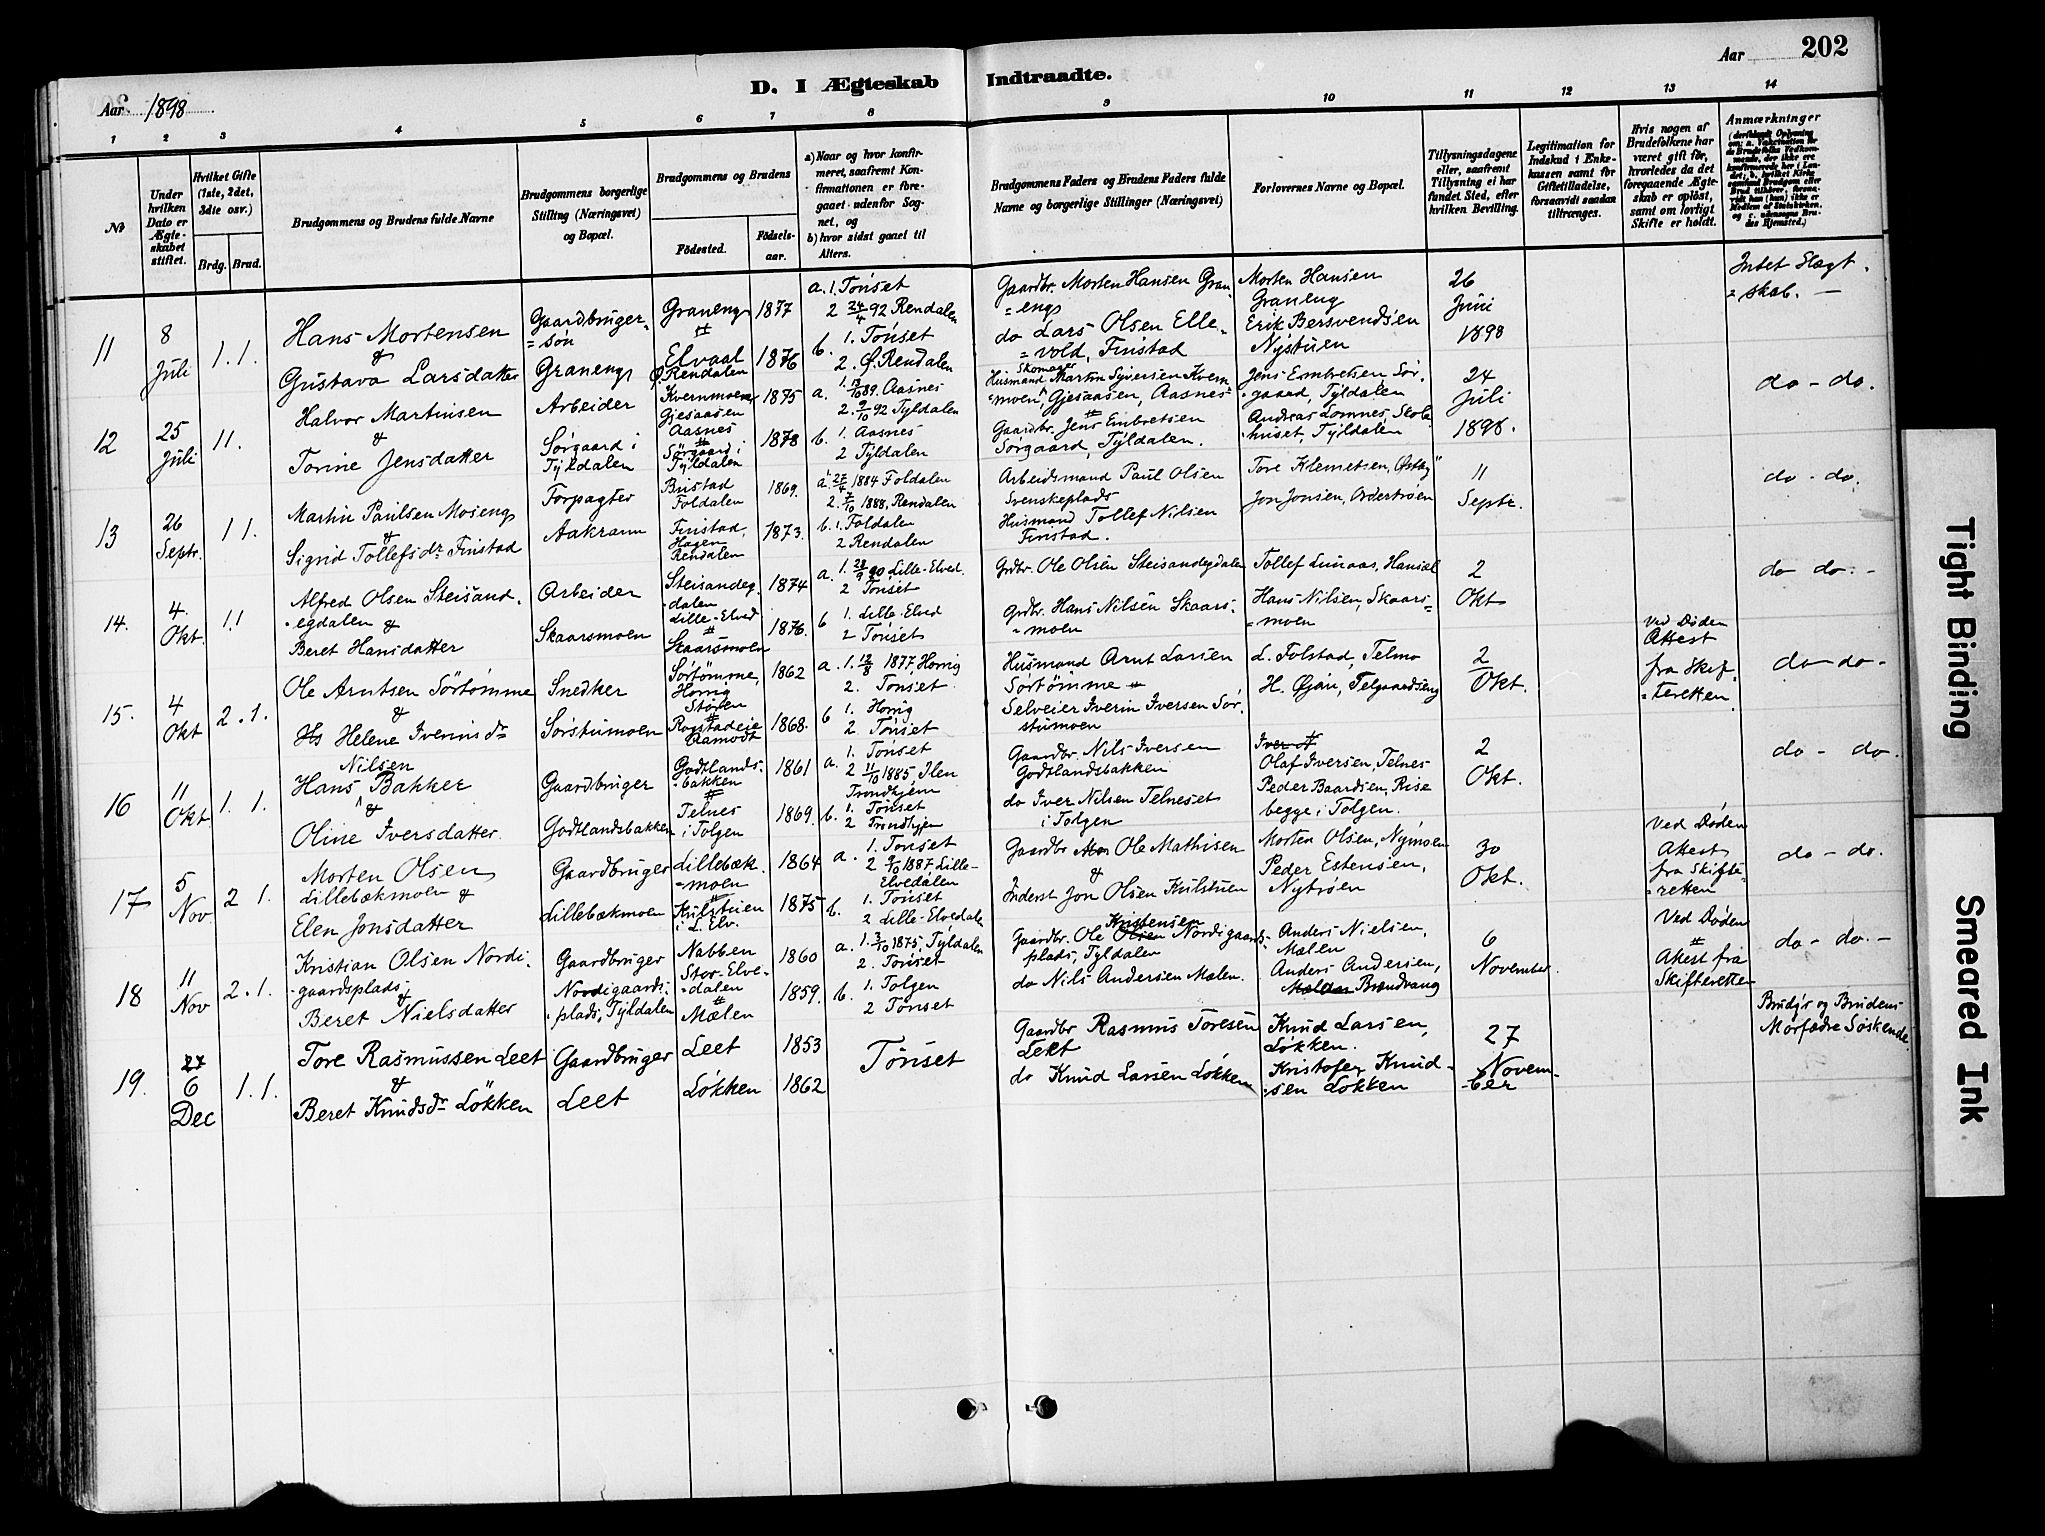 Aar 1898
D. I Ægteskab Indtraadte.
Aar 202
1 2 3 4 5 6 7 8 9 10 11 12 13 14
No
Under hvilken Dato er Ægteskabet stiftet.
Hvilket Gifte (1ste, 2det, 3die osv.)
Brdg. Brud.
Brudgommens og Brudens fulde Navne
Brudgommens borgerlige Stilling (Næringsvei) og Bopæl.
Brudgommens og Brudens
Födested.
Födsels-aar.
a) Naar og hvor konfirmeret, saafremt Konfirmationen er foregaaet udenfor Sognet, og
b) hvor sidst gaaet til Alters.
Brudgommens Faders og Brudens Faders fulde Navne og borgerlige Stillinger (Næringsvei)
Forlovernes Navne og Bopæl.
Tillysningsdagene eller, saafremt Tillysning ei har fundet Sted, efter hvilken Bevilling.
Legitimation for Indskud i Enkekassen samt for Giftetilladelse, forsaavidt saadan tiltrænges.
Hvis nogen af Brudefolkene har været gift för, hvorledes da det foregaaende Ægteskab er oplöst, samt om lovligt Skifte er holdt.
Anmærkninger
11
8 Juli
1. 1.
Hans Mortensen
&
Gustava Larsdatter
Gaardbruger=
=søn
Graneng
Graneng
Elvaal
Ø. Rendalen
1877
1876
a. 1. Tønset
2 24/4 92 Rendalen
b. 1. Tønset
2. Ø. Rendalen
Gaardbr. Morten Hansen Gran=
=eng
do Lars Olsen Elle=
=vold, Finstad
Morten Hansen
Graneng
Erik Bersvendsen
Nystuen
26
Juni
1898
Intet Slægt=
=skab. —
12
25 Juli
1 1.
Halvor Martinsen
&
Torine Jensdatter
Arbeider
Sørgaard i
Tyldalen
Kvernmoen
Gjesaasen
Aasnes
Sørgaard i
Tyldalen
1875
1878
a. 1. 89. Aasnes
2. 9/10 92 Tyldalen
b. 1. Aasnes
2 Tyldalen
Skomager
Husmand Martin Syversen Kvern=
"moen" Gjesaasen, Aasnes
Gaardbr. Jens Embretsen
Sørgaard, Tyldalen.
Jens Embretsen Sør=
=gaard, Tyldalen
Andreas Lomnes, Skole=
=huset, Tyldalen
24
Juli
1898.
do - do.
13
26 Septr.
1 1.
Martin Paulsen Moseng
&
Sigrid Tollefsdr. Finstad
Forpagter
Aakrann
Bristad
Foldalen
Finstad,
Hagen
Rendalen
1869.
1873.
a. 1 27/4 1884 Foldalen
2. 7/10 1888, Rendalen
b. 1. Foldalen
2 Rendalen
Arbeidsmand Paul Olsen
Svenskeplads
Husmand Tollef Nilsen
Finstad.
Tore Klemetsen, Østby"
Jon Jonsen,
11
Septr.
do - do.
14.
4. Okt.
1.1
Alfred Olsen Steisand=
=egdalen &
Beret Hansdatter
Arbeider
Skaarsmoen
Steisandeg=
=dalen
Lille-Elved
Skaarsmoen
1874
1876.
a. 1. 28/9 90 Lille-Elved.
2 Tønset
b 1. Lille-Elved
2 Tønset
Grdbr. Ole Olsen Steisandegdalen
Grdbr. Hans Nilsen Skaars=
=moen
Tollef Lunaas, Hansæl
Hans Nilsen, Skaars=
=moen
2
Okt
do do. -
15.
4 Okt
2. 1.
Ole Arntsen Sörtömme
&
Helene Iverinsdr
Snedker
Sørstumoen
Sørtömme,
Horrig
Støren
Rogstadeie
Aamodt
1862
1868.
a. 1. 12/8 1877, Horrig
2. Tønset
b 1. Horrig
2 Tønset
Husmand Arnt Larsen
Sørtömme
Selveier Iverin Iversen Sør=
stumoen
L. Tolstad, Telmo
H. Øian, Telgaardseng
2
Okt.
Ved Døden
Attest
fra Skif=
=teretten.
do - do -
16
11 Okt.
1. 1.
Nilsen
Hans ^ Bakker
&
Oline Iversdatter
Gaardbruger
Godtlandsbakken
Godtlands=
=bakken
Telnes
i Tolgen
1861
1869.
a. 1. Tønset
2 11/10 1885, Ilen
Trondhjem
b. 1. Tønset
2 Trondhjem
Gaardbr. Nils Iversen
Godtlandsbakken
do Iver Nilsen Telneset
i Tolgen
Olaf Iversen, Telnes
Peder Baardsen, Rise
begge i Tolgen.
2
Okt.
do - do
17
5 Nov.
2 1.
Morten Olsen
Lillebækmoen &
Elen Jonsdatter
Gaardbruger
Lillebækmoen
Lillebæk=
=moen
Kulstuen
i L. Elv.
1864
1875
a. 1. Tønset
2 9/10 1887, Lille-
Elvedalen
b. 1. Tønset
2 Lille-Elvedalen
Gaardbr. Ole Mathisen
&
Inderst Jon Olsen Kulstuen
Morten Olsen, Nymoen
Peder Estensen,
Nytrøen
30
Okt.
Ved Døden
Attest
fra Skifte=
=retten
do - do.
18
11 Nov
2. 1.
Kristian Olsen Nordi=
=gaardsplads
&
Beret Nielsdatter
Gaardbruger
Nordigaards=
=plads, Tyldalen
Nabben
Stor-Elve=
=dalen
Mælen
1860
1859.
a. 1. 3/10 1875, Tyldalen
2. Tønset
b. 1. Tolgen
2 Tønset
Kristensen
Gaardbr. Ole Olsen Nordigaards=
plads, Tyldalen
do Nils Andersen Mælen.
Anders Nielsen,
Mælen
Anders Andersen,
Mælen Brandvang
6
November.
Ved Døden
Attest fra
Skifteretten
do - do. -
19.
27
6 Dec
1. 1.
Tore Rasmussen Leet
&
Beret Knudsdr Lökken
Gaardbruger
Leet
Leet
Lökken
1853
1862
Tönset
Gaardbr Rasmus Toresen
Leet
do Knud Larsen Løkken
Knud Larsen,
Løkken.
Kristofer Knud=
=sen Løkken
27
Novem=
=ber
Brudgs og Brudens
Morfædre Søskende.
Tight Binding
Smeared Ink